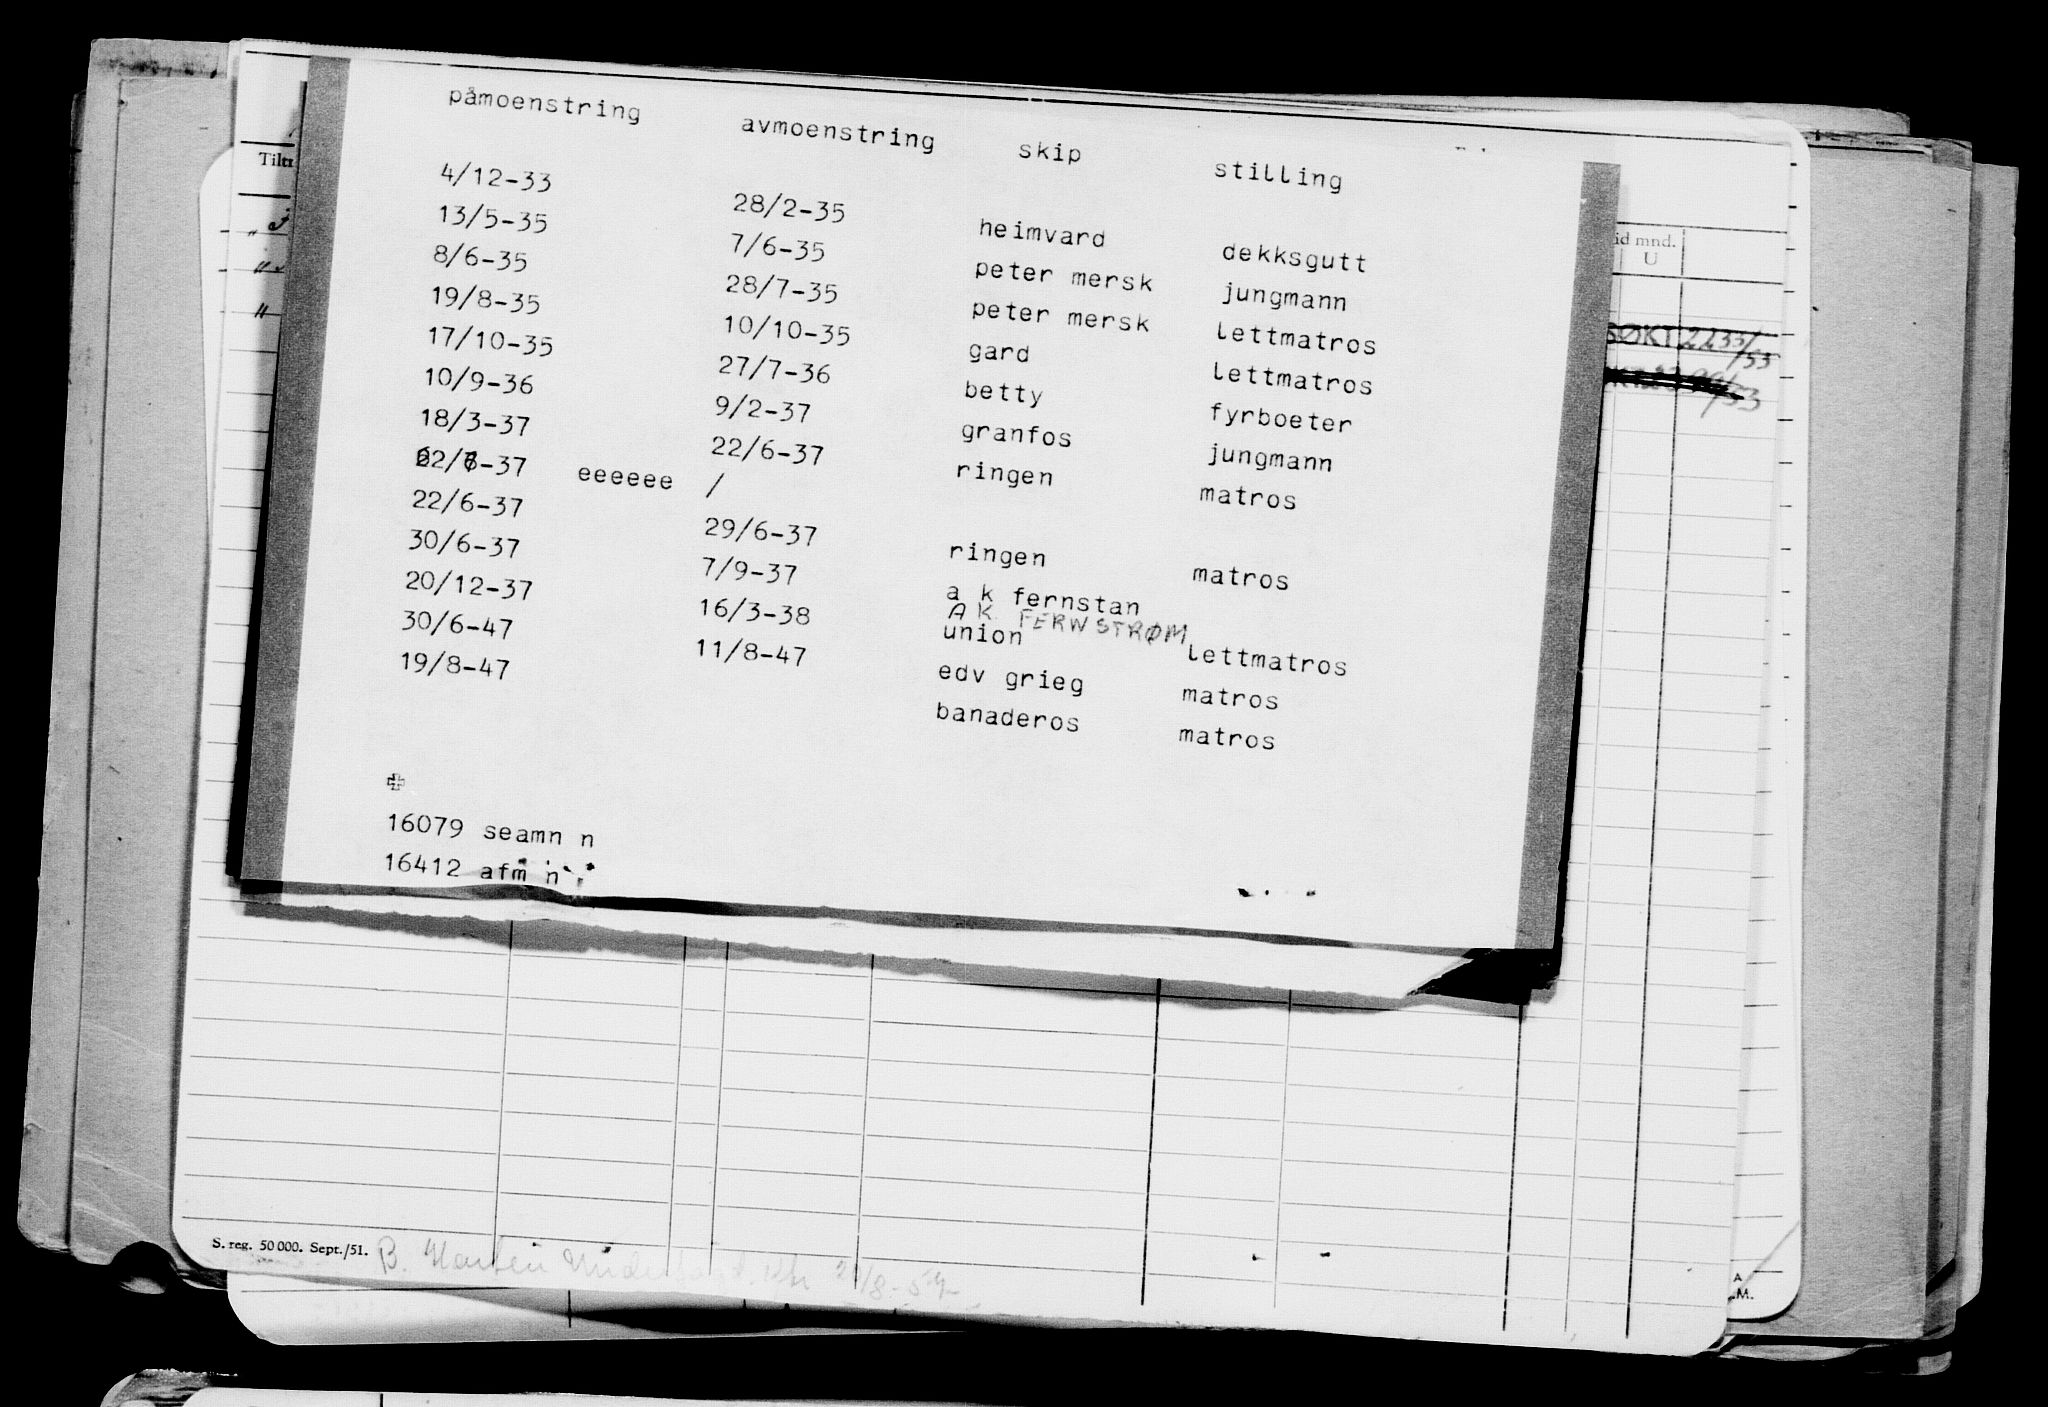 påmoenstring avmoenstring skip stilling
4/12-33 28/2-35 heimvard dekksgutt
13/5-35 7/6-35 peter mersk jungmann
8/6-35 28/7-35 peter mersk lettmatros
19/8-35 10/10-35 gard lettmatros
17/10-35 27/7-36 betty fyrboeter
10/9-36 9/2-37 granfos jungmann
18/3-37 22/6-37 ringen matros
eeeeee /
22/6-37 29/6-37 ringen matros
30/6-37 7/9-37 a k fernstan
A K. FERNSTRØM
20/12-37 16/3-38 union lettmatros
30/6-47 11/8-47 edv grieg matros
19/8-47 banaderos matros
16079 seamn n
16412 afm n
mnd.
U
S. reg. 50 000. Sept./51.